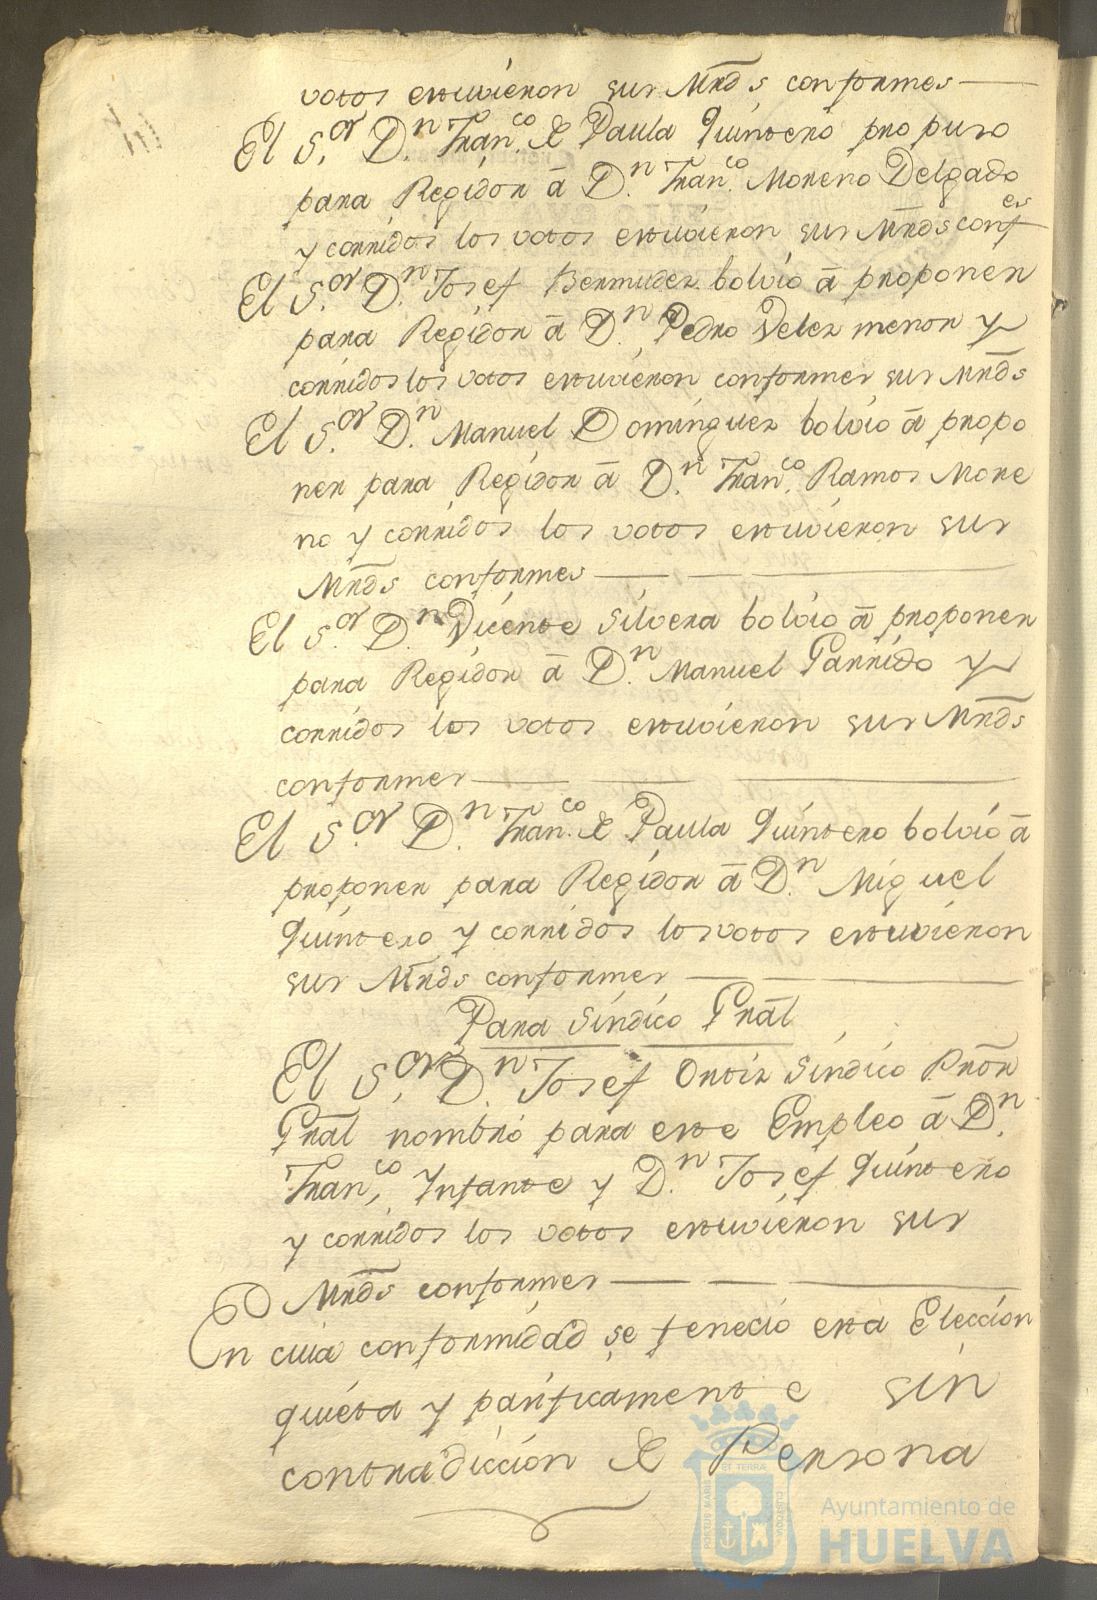 votos estuvieron sus Mrds conformes
El S.or D.n Fran.co de Paula Quintero propuso
para Regidor â D.n Fran.co Moreno Delgado
y corridos los votos estuvieron sus Mrds conf.es
El S.or D.n Josef Bermudez bolvio â proponer
para Regidor â D.n Pedro Velez menor y
corridos los votos estuvieron conformes sus Mrds
El S.or D.n Manuel Dominguez bolvio â propo
ner para Regidor â D.n Fran.co Ramos More
no y corridos los votos estuvieron sus
Mrds conformes
El S.or D.n Vicente Silvera bolvio â proponer
para Regidor â D.n Manuel Garrido y
corridos los votos estuvieron sus Mrds
conformes
El S.or D.n Fran.co de Paula Quintero bolvio â
proponer para Regidor â D.n Miguel
Quintero y corridos los votos estuvieron
sus Mrds conformes
Para Sindico Gral
El S.or D.n Josef Ortiz Sindico Pror
Gral nombró para este Empleo â D.n
Fran.co Ynfante y D.n Josef Quintero
y corridos los votos estuvieron sus
Mrds conformes
En cuia conformidad se feneció esta Elección
quieta y pacificamente sin
contradiccion de Persona
Ayuntamiento de
HUELVA